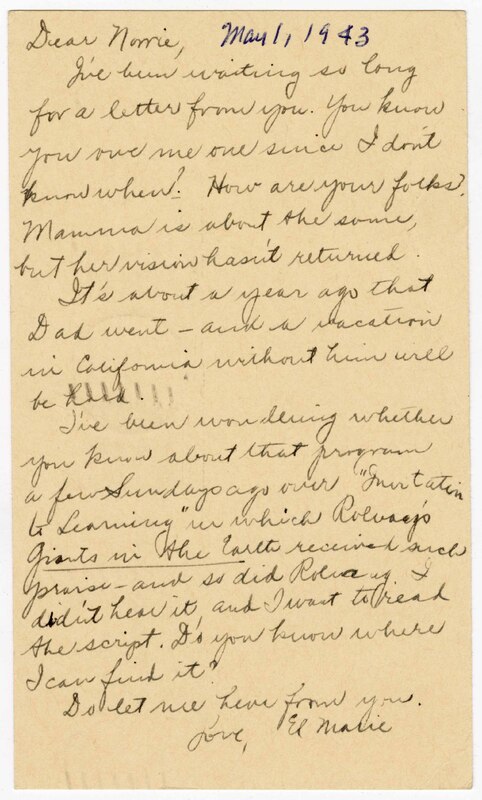 Dear Norrie, May 1, 1943
I've been waiting so long
for a letter from you. You know
you owe me one since I don't
know when! How are your folks?
Mamma is about the same,
but her vision hasn't returned.
It's about a year ago that
Dad went – and a vacation
in California without him will
be hard.
I've been wondering whether
you know about that program
a few Sundays ago over "Invitation
to Learning" in which Rolvaag's
Giants in the Earth received such
praise – and so did Rolvaag. I
didn't hear it, and I want to read
the script. Do you know where
I can find it?
Do let me hear from you.
Love, El Marie